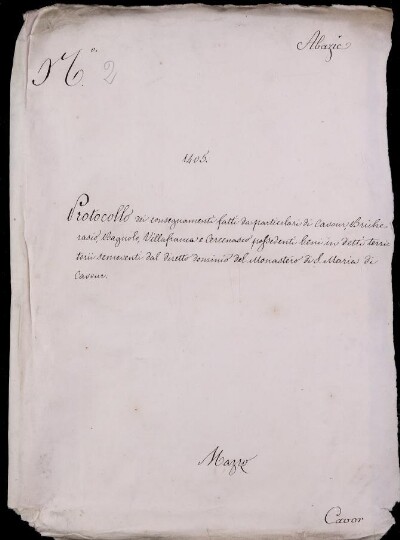 Abazie
N.º 2
1405.
Protocollo di consegnamenti fatti da particolari di Cavour, Briche
rasio, Bagnolo, Villafranca e Cercenasco possedenti beni in detti terri
torii semoventi dal diretto dominio del Monastero di S. Maria di
Cavour.
Mazzo
Cavor